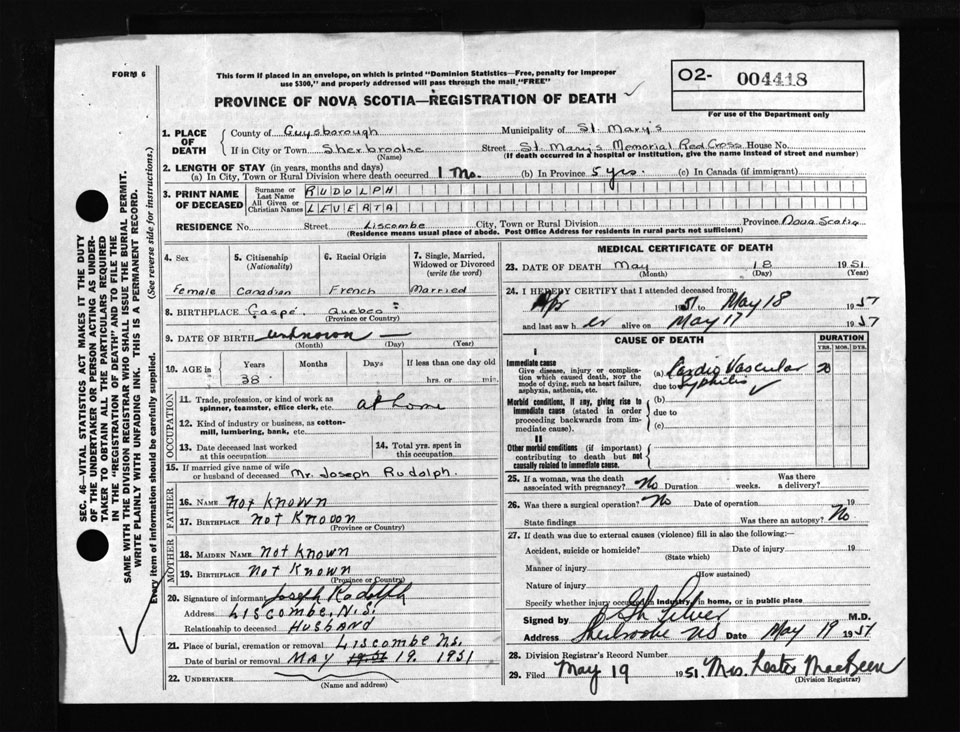 FORM 6
This form if placed in an envelope, on which is printed "Dominion Statistics—Free, penalty for improper
use $300," and properly addressed will pass through the mail "FREE"
O2- 004418
For use of the Department only
PROVINCE OF NOVA SCOTIA—REGISTRATION OF DEATH
1. PLACE OF DEATH { County of Guysborough Municipality of St. Mary's
If in City or Town Sherbrooke Street St. Mary's Memorial Red Cross House No.
(Name) (If death occurred in a hospital or institution, give the name instead of street and number)
2. LENGTH OF STAY (in years, months and days)
(a) In City, Town or Rural Division where death occurred 1 Mo. (b) In Province 5 yrs. (c) In Canada (if immigrant)
3. PRINT NAME OF DECEASED { Surname or Last Name RUDOLPH
All Given or Christian Names LEVERTA
RESIDENCE No. Street Liscombe City, Town or Rural Division Province Nova Scotia
(Residence means usual place of abode. Post Office Address for residents in rural parts not sufficient)
4. Sex 5. Citizenship (Nationality) 6. Racial Origin 7. Single, Married, Widowed or Divorced (write the word)
Female Canadian French Married
8. BIRTHPLACE Gaspé Quebec
(Province or Country)
9. DATE OF BIRTH unknown
(Month) (Day) (Year)
10. AGE in { Years Months Days If less than one day old
38 hrs. or min.
OCCUPATION
11. Trade, profession, or kind of work as spinner, teamster, office clerk, etc. at home
12. Kind of industry or business, as cotton-mill, lumbering, bank, etc.
13. Date deceased last worked at this occupation 14. Total yrs. spent in this occupation
15. If married give name of wife or husband of deceased Mr. Joseph Rudolph.
FATHER
16. NAME Not Known
17. BIRTHPLACE Not Known
(Province or Country)
MOTHER
18. MAIDEN NAME Not Known
19. BIRTHPLACE Not Known
(Province or Country)
20. Signature of informant Joseph Rudolph
Address LISCOMBE, N.S.
Relationship to deceased HUSBAND
21. Place of burial, cremation or removal LISCOMBE N.S.
Date of burial or removal MAY 19. 1951
22. UNDERTAKER
(Name and address)
MEDICAL CERTIFICATE OF DEATH
23. DATE OF DEATH May 18 1951
(Month) (Day) (Year)
24. I HEREBY CERTIFY that I attended deceased from:
Apr 1951 to May 18 1951
and last saw her alive on May 17 1951
CAUSE OF DEATH DURATION
YRS. MOS. DYS.
I
Immediate cause
Give disease, injury or complication which caused death, not the mode of dying, such as heart failure, asphyxia, asthenia, etc.
(a) Cardio Vascular 20
due to syphilis
Morbid conditions, if any, giving rise to immediate cause (stated in order proceeding backwards from immediate cause).
(b)
due to
(c)
II
Other morbid conditions (if important) contributing to death but not causally related to immediate cause.
25. If a woman, was the death associated with pregnancy? No Duration weeks. Was there a delivery?
26. Was there a surgical operation? No Date of operation 19
State findings Was there an autopsy? No
27. If death was due to external causes (violence) fill in also the following:—
Accident, suicide or homicide? Date of injury 19
(State which)
Manner of injury
(How sustained)
Nature of injury
Specify whether injury occurred in industry, in home, or in public place
Signed by M.D.
Address Sherbrooke NS Date May 19 1951
28. Division Registrar's Record Number
29. Filed May 19 1951. Mrs. Lester MacKeen
(Division Registrar)
SEC. 46—VITAL STATISTICS ACT MAKES IT THE DUTY
OF THE UNDERTAKER OR PERSON ACTING AS UNDER-
TAKER TO OBTAIN ALL THE PARTICULARS REQUIRED
IN THE "REGISTRATION OF DEATH" AND TO FILE THE
SAME WITH THE DIVISION REGISTRAR WHO SHALL ISSUE THE BURIAL PERMIT.
WRITE PLAINLY WITH UNFADING INK. THIS IS A PERMANENT RECORD.
Every item of information should be carefully supplied. (See reverse side for instructions.)